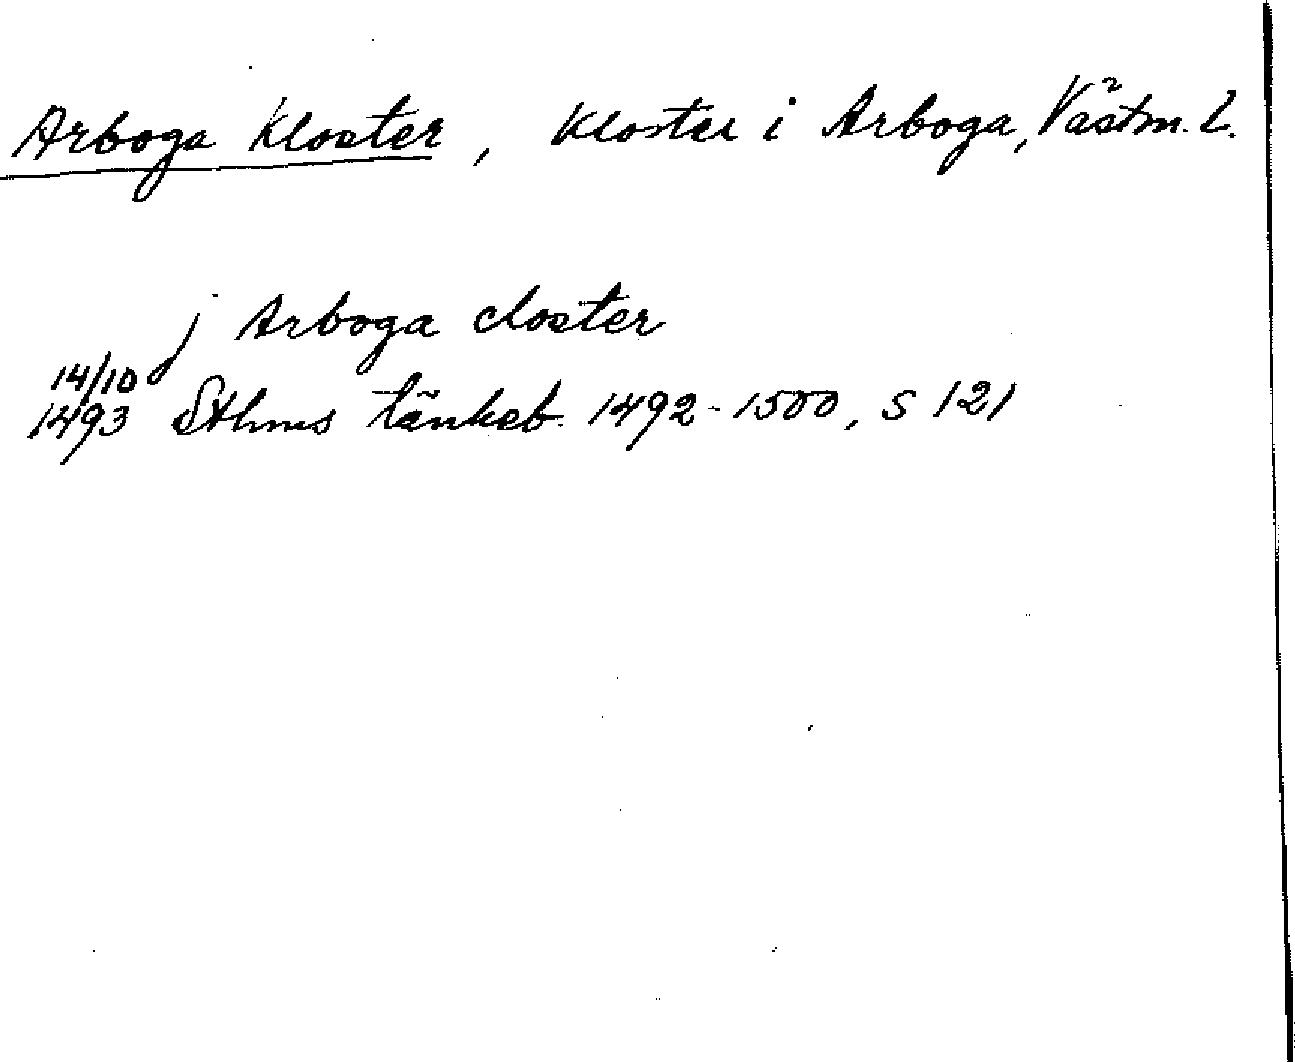 Arboga Kloster, Kloster i Arboga, Västm. L.
j Arboga closter
14/10
1493 Sthms tänkeb. 1492-1500, s 121